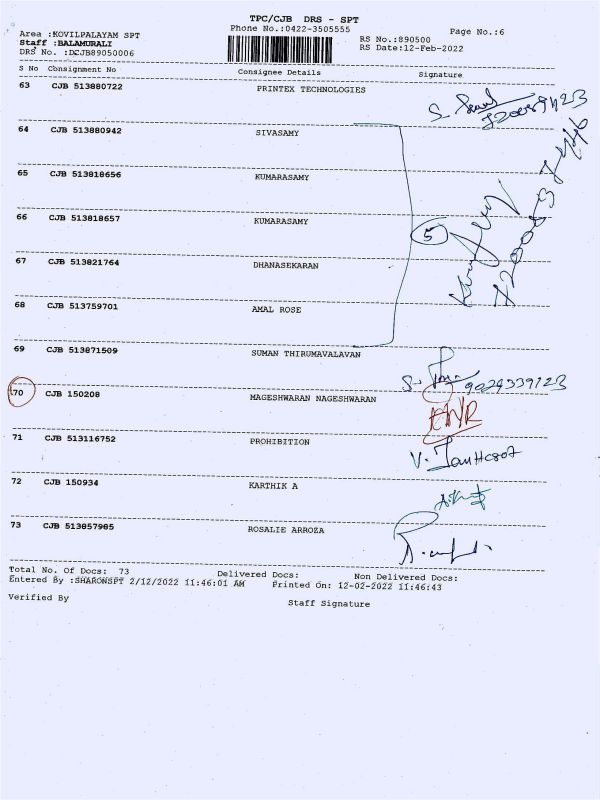 TPC/CJB DRS - SPT
Phone No.:0422-3505555
Page No.:6
Area :KOVILPALAYAM SPT
Staff :BALAMURALI
DRS No. :DCJB89050006
RS No.:890500
RS Date:12-Feb-2022
S No Consignment No Consignee Details Signature
63 CJB 513880722 PRINTEX TECHNOLOGIES
64 CJB 513880942 SIVASAMY
65 CJB 513818656 KUMARASAMY
66 CJB 513818657 KUMARASAMY
5
67 CJB 513821764 DHANASEKARAN
68 CJB 513759701 AMAL ROSE
69 CJB 513871509 SUMAN THIRUMAVALAVAN
70 CJB 150208 MAGESHWARAN NAGESHWARAN
71 CJB 513116752 PROHIBITION
72 CJB 150934 KARTHIK A
73 CJB 513857985 ROSALIE ARROZA
Total No. Of Docs: 73 Delivered Docs: Non Delivered Docs:
Entered By :SHARONSPT 2/12/2022 11:46:01 AM Printed On: 12-02-2022 11:46:43
Verified By Staff Signature